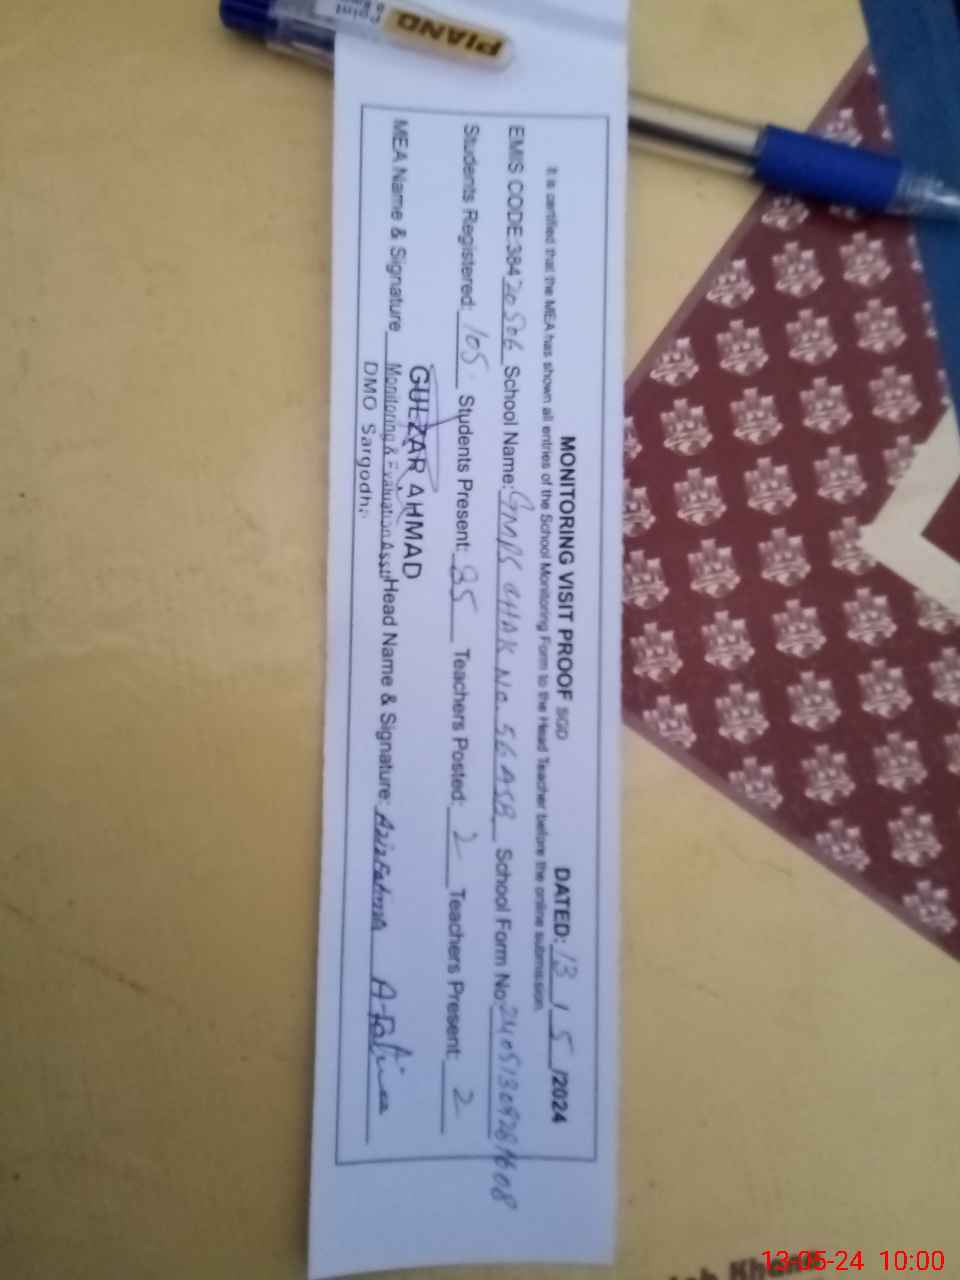 MONITORING VISIT PROOF SGD DATED: 13 / 5 /2024
It is certified that the MEA has shown all entries of the School Monitoring Form to the Head Teacher before the online submission.
EMIS CODE:38420506 School Name: GMPS CHAK No. 56 ASB School Form No
Students Registered: 105 Students Present: 85 Teachers Posted: 2 Teachers Present: 2
GULZAR AHMAD
MEA Name & Signature Monitoring & Evaluation Asst: Head Name & Signature: Aziz Fatima A-Fatima
DMO Sargodha
PIANO
Point
13-05-24 10:00